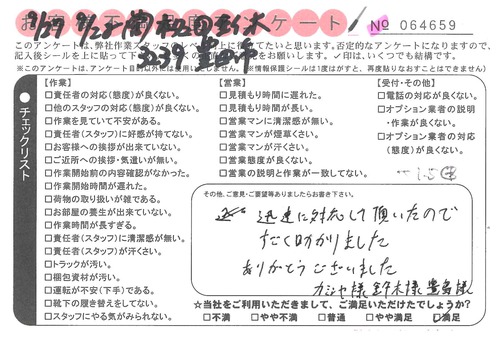 9/29
アンケート
No 064659
このアンケートは、弊社作業スタッフのレベル向上に役立てたいと思います。否定的なアンケートになりますので、
記入後シールを上に貼って下
をお願いします。✓印は、いくつでも結構です。
※このアンケートは、アンケート目的以外には使用いたしません。※情報保護シールは1度はがすと、再度貼りなおすことはできません)
チェックリスト
【作業】
□責任者の対応(態度)が良くない。
□他のスタッフの対応(態度)が良くない。
□作業を見ていて不安がある。
□責任者(スタッフ)に好感が持てない。
□お客様への挨拶が出来ていない。
□ご近所への挨拶・気遣いが無い。
□作業開始前の内容確認がなかった。
□作業開始時間が遅れた。
□荷物の取り扱いが雑である。
□お部屋の養生が出来ていない。
□作業時間が長すぎる。
□責任者(スタッフ)に清潔感が無い。
□責任者(スタッフ)が汗くさい。
□トラックが汚い。
□梱包資材が汚い。
□運転が不安(下手)である。
□靴下の履き替えをしてない。
□スタッフにやる気がみられない。
【営業】
□見積もり時間に遅れた。
□見積もり時間が長い。
□営業マンに清潔感が無い。
□営業マンが煙草くさい。
□営業マンが汗くさい。
□営業態度が良くない。
□営業の説明と作業が一致してない。
【受付・その他】
□電話の対応が良くない。
□オプション業者の説明
・作業が良くない。
□オプション業者の対応
(態度)が良くない。
その他、ご意見・ご要望等ありましたらお書き下さい。
迅速に対応して頂いたので
すごく助かりました
ありがとうございました
鈴木様
☆当社をご利用いただきまして、ご満足いただけたでしょうか?
□不満 □やや不満 □普通 □やや満足 ☑満足